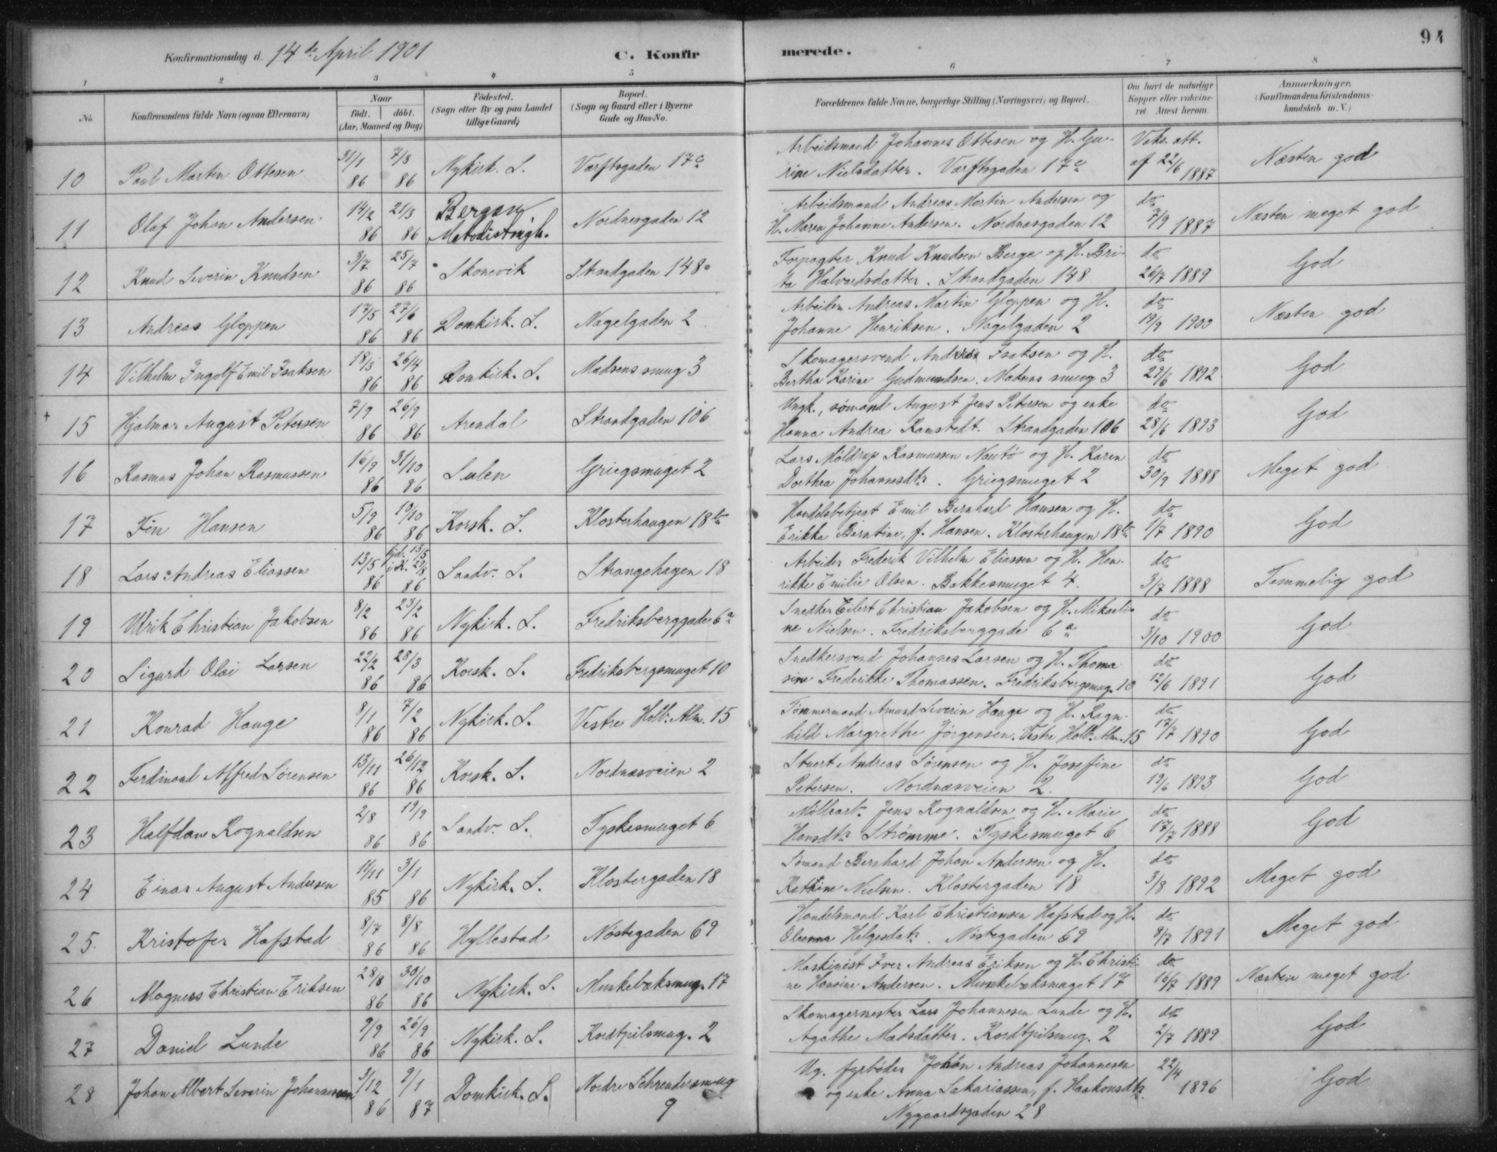 Konfirmationsdag d. 14de April 1901 C. Konfirmerede. 94
1 2 3 4 5 6 7 8
No. Konfirmandens fulde Navn (ogsaa Efternavn) Naar født. døbt. (Aar, Maaned og Dag) Fødested. (Sogn eller By og paa Landet tillige Gaard) Bopæl. (Sogn og Gaard eller i Byerne Gade og Hus-No. Forældrenes fulde Navne, borgerlige Stilling (Næringsvei) og Bopæl. Om havt de naturlige Kopper eller vakcineret Attest herom. Anmærkninger. (Konfirmandens Kristendomskundskab m. V.)
10 Paul Martin Ottesen 31/1 86 7/3 86 Nykirk. S. Værftsgaden 17a Arbeidsmand Johannes Ottesen og H. Gurine Nielsdatter. Værftsgaden 17a Vaks. att. af 22/6 1887 Næsten god
11 Olaf Johan Andersen 14/2 86 21/3 86 Bergen Metodistmgh. Nordnesgaden 12 Arbeidsmand Andreas Martin Andersen og H. Maren Johanne Andersen. Nordnæsgaden 12 do 7/9 1887 Næsten meget god
12 Knud Severin Knudsen 3/7 86 25/7 86 Skonevik Strandgaden 148a Forpagter Knud Knudsen Berge og H. Brita Halvardsdatter. Strandgaden 148 do 26/7 1889 God
13 Andreas Gloppen 17/5 86 27/6 86 Domkirk. S. Nagelgaden 2 Arbeider Andreas Martin Gloppen og H. Johanne Henriksen. Nagelgaden 2 do 19/9 1900 Næsten god
14 Vilhelm Ingolf Emil Isaksen 18/3 86 26/4 86 Domkirk. S. Madsens smug 3 Skomagersvend Andreas Isaksen og H. Bertha Karine Gudmundsen. Madsens smug 3 do 27/6 1892 God
15 Hjalmar August Petersen 7/9 86 26/9 86 Arendal Strandgaden 106 Ungk., sømand August Jens Petersen og enke Hanna Andrea Ramstedt. Strandgaden 106 do 28/6 1893 God
16 Rasmus Johan Rasmussen 16/9 86 31/10 86 Sulen Griegsmuget 2 Lars Möldrup Rasmussen Nautø og H. Karen Dorthea Johannesdtr. Griegsmuget 2 do 30/9 1888 Meget god
17 Finn Hansen 5/9 86 19/10 86 Korsk. S. Klosterhaugen 18b Handelsbetjent Emil Bernhard Hansen og H. Erikka Berntine, f. Hansen. Klosterhaugen 18b do 1/7 1890 God
18 Lars Andreas Eliassen 13/5 86 86 Sandv. S. Strangehagen 18 Arbeider Frederik Vilhelm Eliassen og H. Henrikke Emilie Olsen. Bakkesmuget 4. do 3/7 1888 Temmelig god
19 Ulrik Christian Jakobsen 8/2 86 23/2 86 Nykirk. S. Fredriksberggade 6a Snedker Eilert Christian Jakobsen og H. Mikaeline Nielsen. Fredriksberggade 6a do 3/10 1900 God
20 Sigurd Olai Larsen 22/2 86 28/3 86 Korsk. S. Fredriksbergsmuget 10 Snedkersvend Johannes Larsen og H. Thomasine Frederikke Thomassen. Fredriksbergsmug. 10 do 12/6 1891 God
21 Konrad Hauge 8/1 86 7/2 86 Nykirk. S. Vestre Holb. Alm. 15 Tømmermand Amund Severin Hauge og H. Ragnhild Margrethe Jørgensen. Vestre Holb. Alm. 15 do 17/7 1890 God
22 Ferdinand Alfred Sørensen 13/11 86 26/12 86 Korsk. S. Nordnæsveien 2 Stuert Andreas Sørensen og H. Josefine Petersen. Nordnæsveien 2. do 19/6 1893 God
23 Halfdan Rognaldsen 2/8 86 19/9 86 Sandv. S. Tyskesmuget 6 Møllearb. Jens Rognaldsen og H. Marie Hansdtr. Strømme. Tyskesmuget 6 do 17/7 1888 God
24 Einar August Andersen 11/11 85 3/1 86 Nykirk. S. Klostergaden 18 Sømand Bernhard Johan Andersen og H. Katrine Nielsen. Klostergaden 18 do 3/8 1892 Meget god
25. Kristofer Hafstad 8/7 86 8/8 86 Hyllestad Nøstegaden 69 Handelsmand Karl Christiansen Hafstad og H. Oleanna Helgesdatr. Nøstegaden 69 do 8/7 1891 Meget god
26 Magnus Christian Eriksen 28/8 86 30/10 86 Nykirk. S. Munkebæksmug. 17 Maskinist Iver Andreas Eriksen og H. Christine Hansine Andersen. Munkebæksmuget 17 do 16/7 1889 Næsten meget god
27 Daniel Lunde 9/9 86 26/9 86 Nykirk. S. Kordtpilsmug. 2 Skomagermester Lars Johannesen Lunde og H. Agathe Madsdatter. Kordtpilsmug. 2 do 2/7 1889 God
28 Johan Albert Severin Johannessen 3/12 86 9/1 87 Domkirk. S. Nordre Schrendersmug 9 Ug. fyrbøder Johan Andreas Johannesen og enke Anna Sakariassen, f. Haakonsdtr. Nygaardsgaden 28 22/4 1896 God